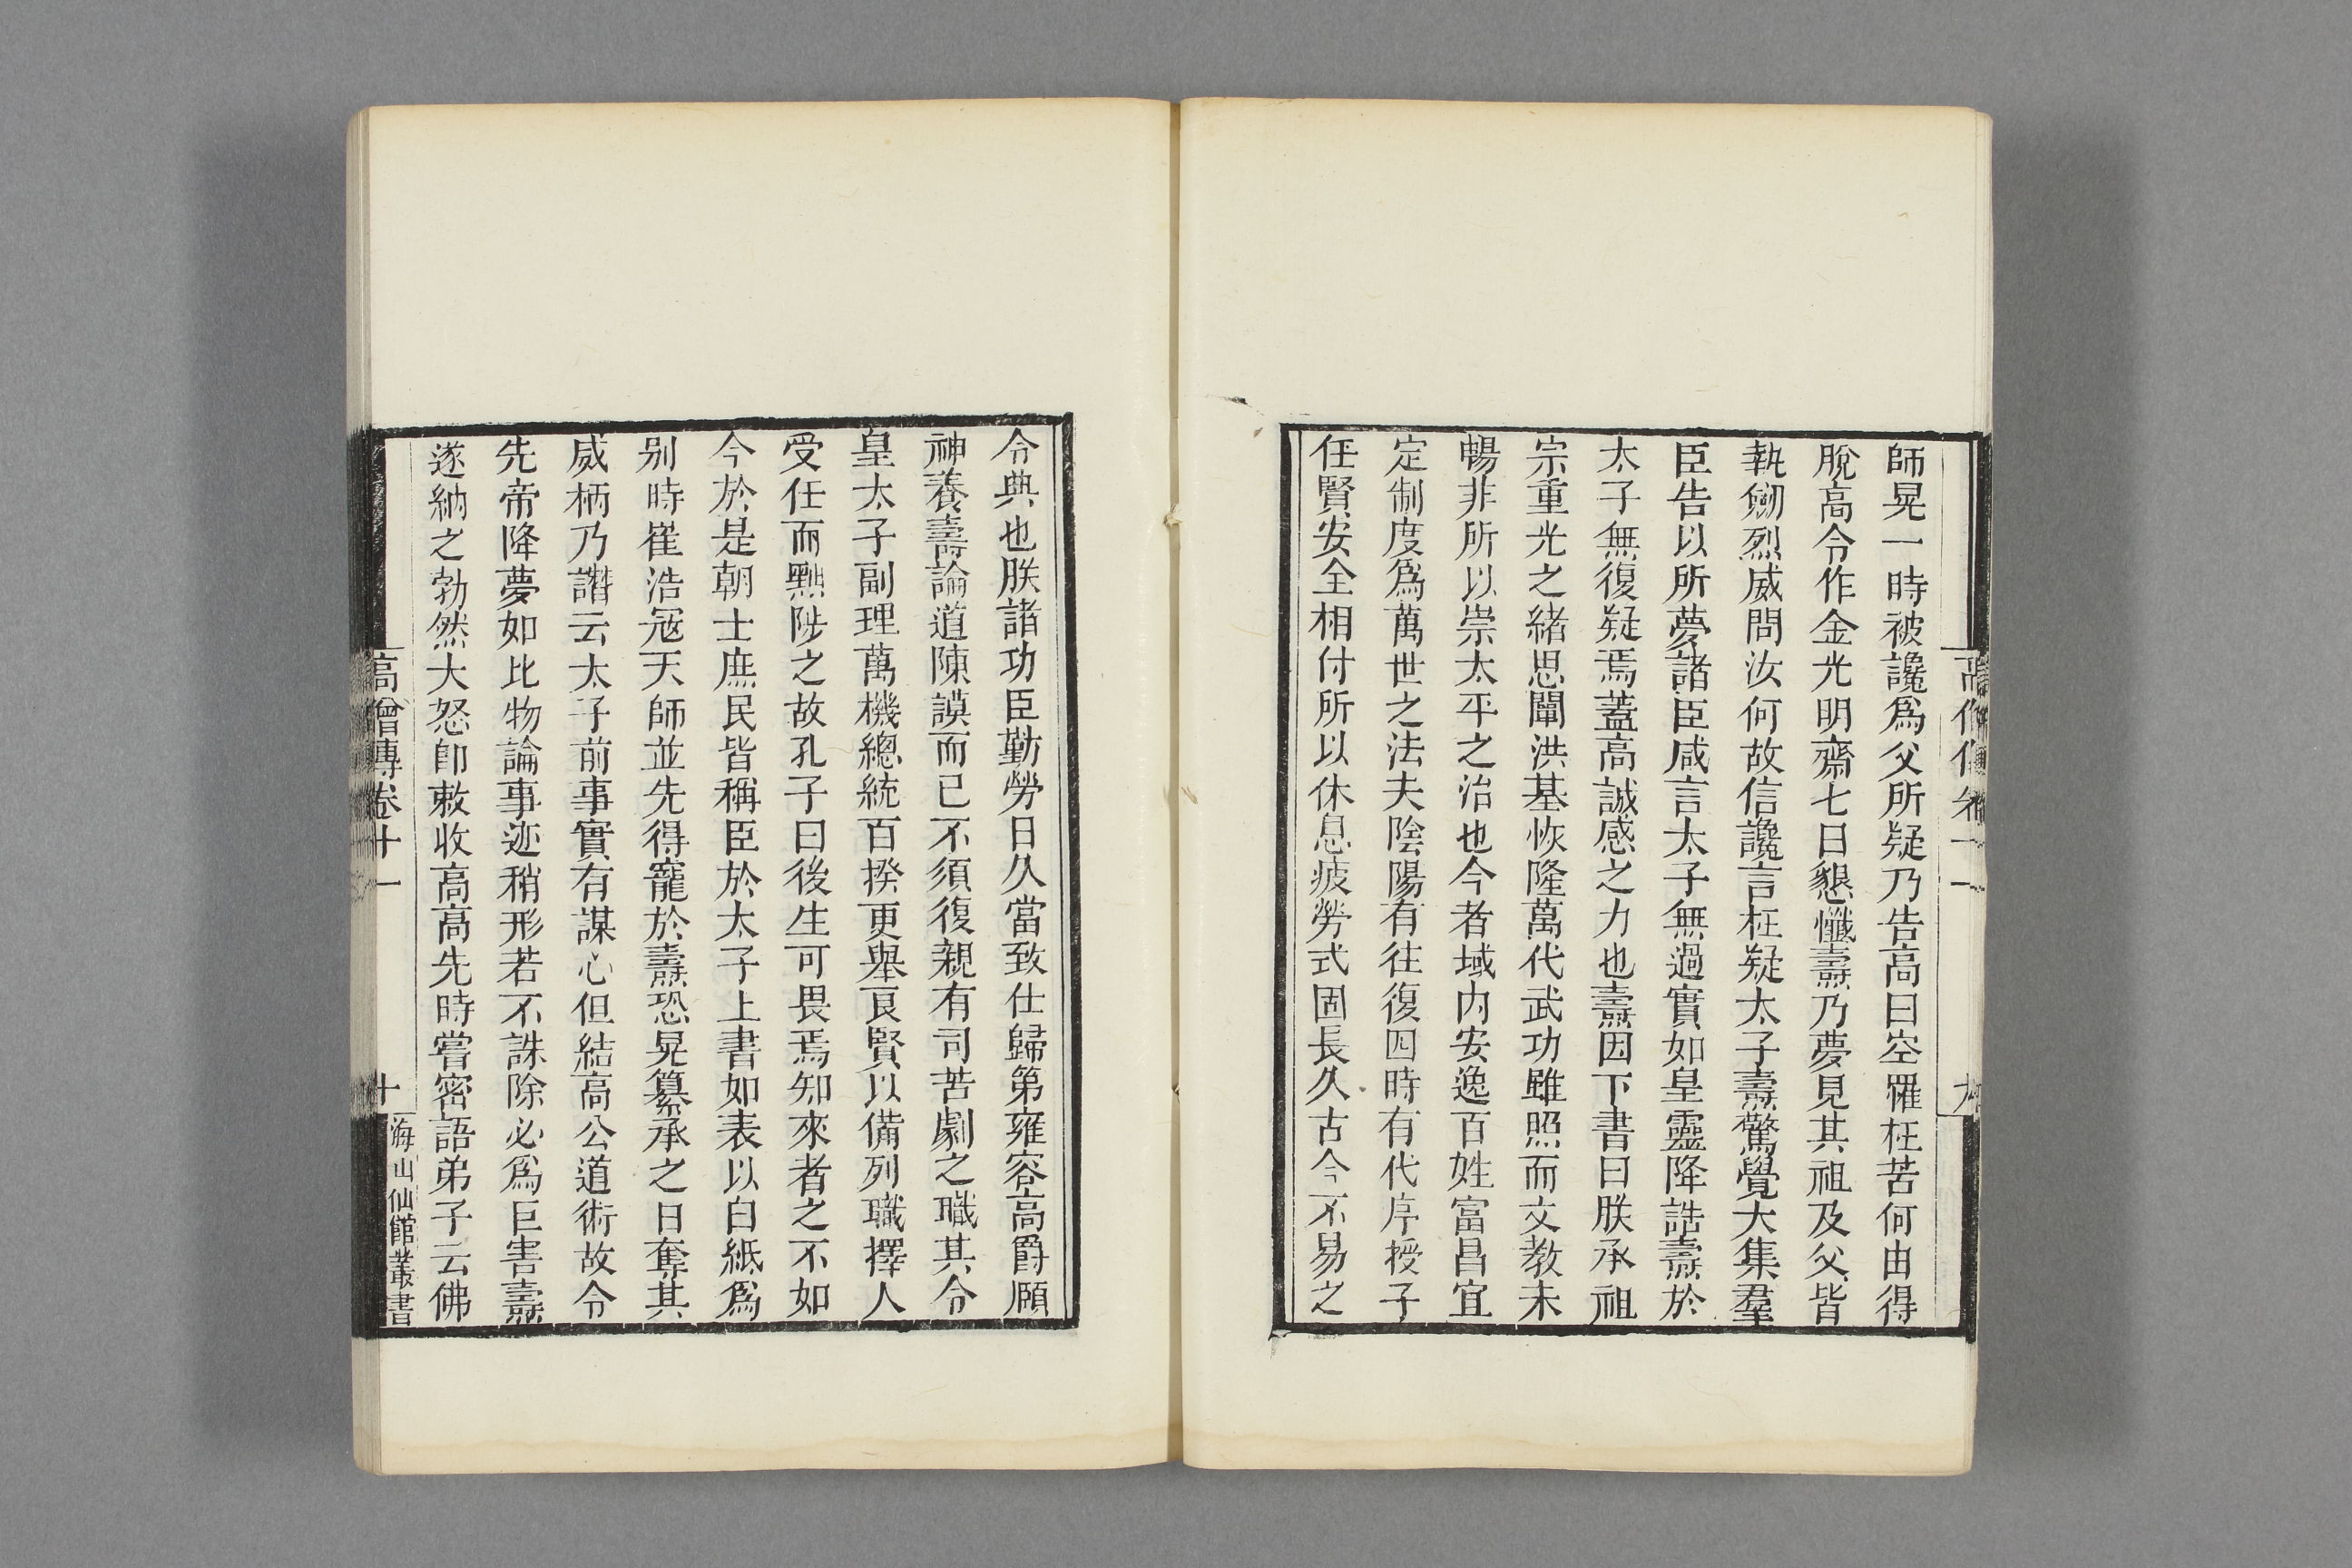 師晃一時被讒爲父所疑乃告高曰空羅枉苦何由得
脫高令作金光明齋七日懇懺燾乃夢見其祖及父皆
執劒烈威問汝何故信讒言枉疑太子燾驚覺大集羣
臣告以所夢諸臣咸言太子無過實如皇靈降誥燾於
太子無復疑焉蓋高誠感之力也燾因下書曰朕承祖
宗重光之緒思闡洪基恢隆萬代武功雖照而文敎未
暢非所以崇太平之治也今者域內安逸百姓富昌宜
定制度爲萬世之法夫陰陽有往復四時有代序授子
任賢安全相付所以休息疲勞式固長久古今不易之
令典也朕諸功臣勤勞日久當致仕歸第雍容高爵願
神養壽論道陳謨而已不須復親有司苦劇之職其令
皇太子副理萬機總統百揆更舉良賢以備列職擇人
受任而黜陟之故孔子曰後生可畏焉知來者之不如
今於是朝士庶民皆稱臣於太子上書如表以白紙爲
別時崔浩寇天師並先得寵於燾恐晃纂承之日奪其
威柄乃譖云太子前事實有謀心但結高公道術故令
先帝降夢如比物論事迹稍形若不誅除必爲巨害燾
遂納之勃然大怒卽敕收高高先時嘗密語弟子云佛
高僧傳卷十一
十
海山仙館叢書